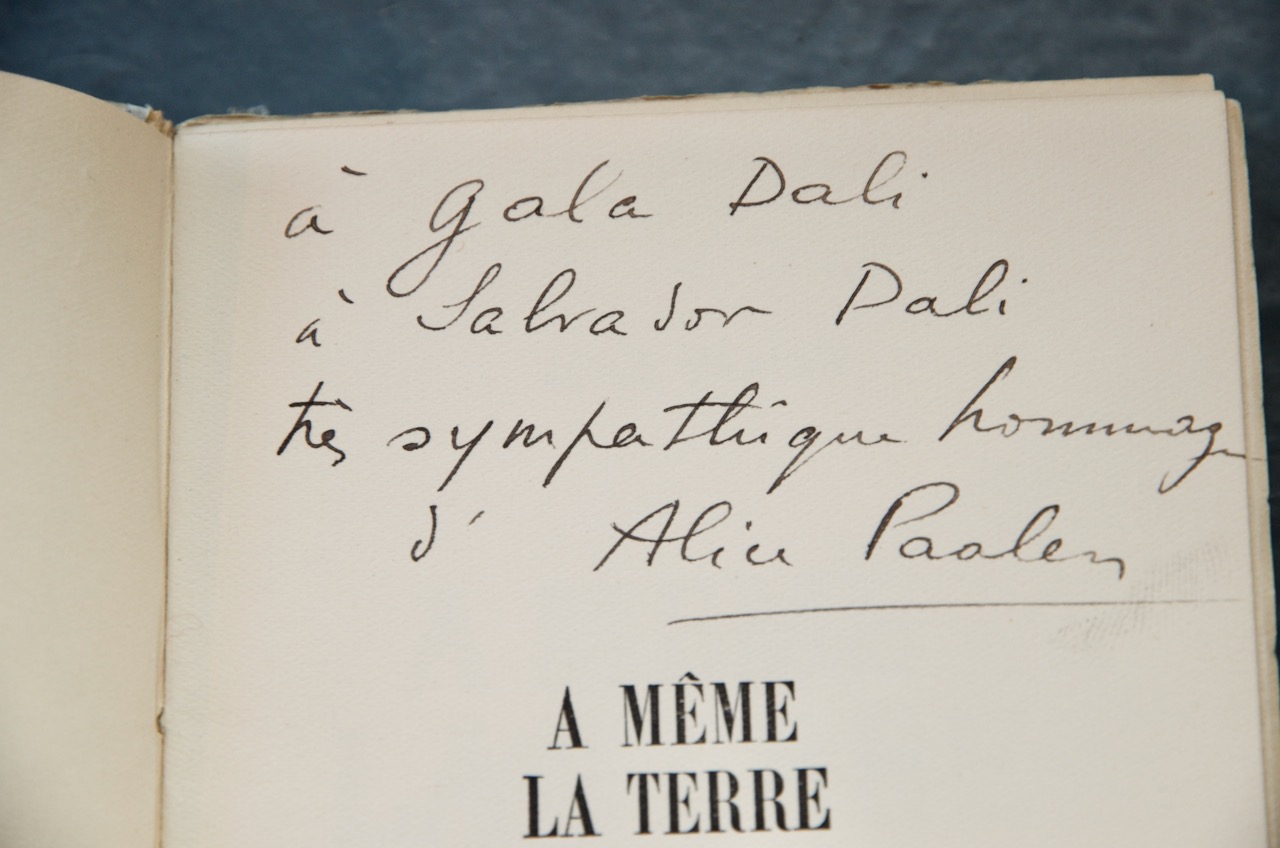 à Gala Dali
à Salvador Dali
très sympathique hommage
d' Alice Paalen
A MÊME
LA TERRE